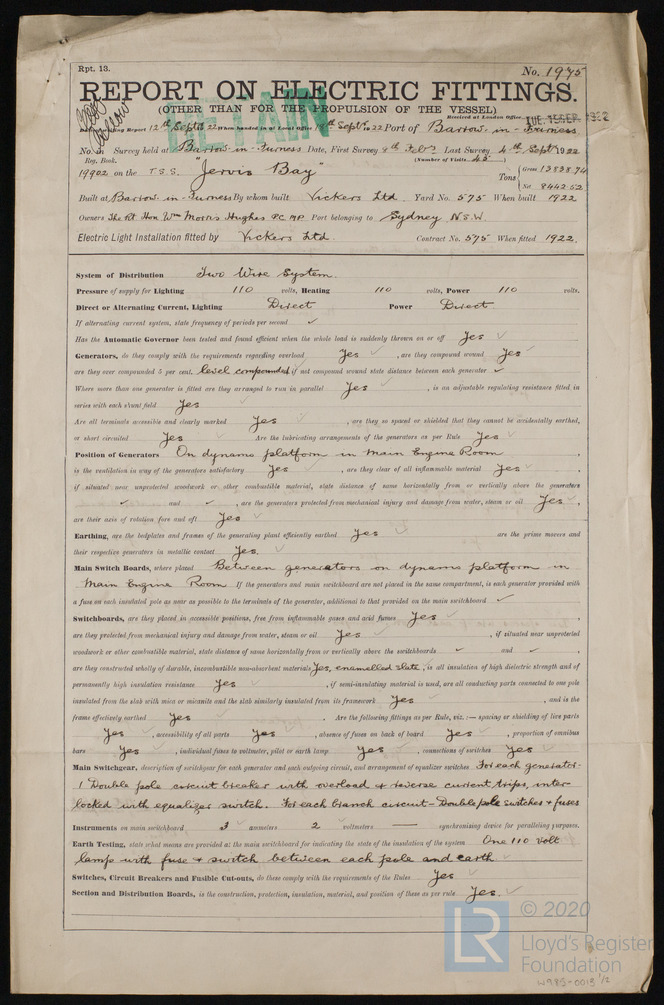 Rpt. 13.
No. 1975
REPORT ON ELECTRIC FITTINGS.
RETAIN
(OTHER THAN FOR THE PROPULSION OF THE VESSEL)
Received at London Office TUE. 19 SEP 1922
Writing Report 12th Septr 1922 When handed in at Local Office Septr 1922 Port of Barrow-in-Furness
No. in Survey held at Barrow-in-Furness Date, First Survey 8th Feby Last Survey 4th Septr 1922
Reg. Book. (Number of Visits 45)
19902 on the T.S.S. "Jervis Bay" Tons { Gross 13838.74
Net 8442.52
Built at Barrow in Furness By whom built Vickers Ltd Yard No. 575 When built 1922
Owners The Rt. Hon. Wm Morris Hughes P.C. M.P. Port belonging to Sydney N.S.W.
Electric Light Installation fitted by Vickers Ltd. Contract No. 575 When fitted 1922.
System of Distribution Two Wire System.
Pressure of supply for Lighting 110 volts, Heating 110 volts, Power 110 volts.
Direct or Alternating Current, Lighting Direct Power Direct.
If alternating current system, state frequency of periods per second ✓
Has the Automatic Governor been tested and found efficient when the whole load is suddenly thrown on or off Yes ✓
Generators, do they comply with the requirements regarding overload Yes ✓, are they compound wound Yes ✓
are they over compounded 5 per cent. level compounded, if not compound wound state distance between each generator ✓
Where more than one generator is fitted are they arranged to run in parallel Yes ✓, is an adjustable regulating resistance fitted in
series with each shunt field Yes ✓
Are all terminals accessible and clearly marked Yes ✓, are they so spaced or shielded that they cannot be accidentally earthed,
or short circuited Yes ✓ Are the lubricating arrangements of the generators as per Rule Yes ✓
Position of Generators On dynamo platform in Main Engine Room
is the ventilation in way of the generators satisfactory Yes ✓, are they clear of all inflammable material Yes ✓,
if situated near unprotected woodwork or other combustible material, state distance of same horizontally from or vertically above the generators
✓ and ✓, are the generators protected from mechanical injury and damage from water, steam or oil Yes ✓,
are their axis of rotation fore and aft Yes ✓
Earthing, are the bedplates and frames of the generating plant efficiently earthed Yes ✓ are the prime movers and
their respective generators in metallic contact Yes. ✓
Main Switch Boards, where placed Between generators on dynamo platform in
Main Engine Room If the generators and main switchboard are not placed in the same compartment, is each generator provided with
a fuse on each insulated pole as near as possible to the terminals of the generator, additional to that provided on the main switchboard ✓
Switchboards, are they placed in accessible positions, free from inflammable gases and acid fumes Yes ✓,
are they protected from mechanical injury and damage from water, steam or oil Yes ✓, if situated near unprotected
woodwork or other combustible material, state distance of same horizontally from or vertically above the switchboards ✓ and ✓,
are they constructed wholly of durable, incombustible non-absorbent materials Yes, enamelled slate, is all insulation of high dielectric strength and of
permanently high insulation resistance Yes ✓, if semi-insulating material is used, are all conducting parts connected to one pole
insulated from the slab with mica or micanite and the slab similarly insulated from its framework Yes ✓, and is the
frame effectively earthed Yes ✓. Are the following fittings as per Rule, viz.:— spacing or shielding of live parts
Yes ✓, accessibility of all parts Yes ✓, absence of fuses on back of board Yes ✓, proportion of omnibus
bars Yes ✓, individual fuses to voltmeter, pilot or earth lamp Yes ✓, connections of switches Yes ✓
Main Switchgear, description of switchgear for each generator and each outgoing circuit, and arrangement of equalizer switches For each generator-
1 Double pole circuit breaker with overload & reverse current trips, inter-
locked with equalizer switch. For each branch circuit - Double pole switches & fuses
Instruments on main switchboard 3 ammeters 2 voltmeters — synchronising device for paralleling purposes.
Earth Testing, state what means are provided at the main switchboard for indicating the state of the insulation of the system One 110 volt
lamp with fuse & switch between each pole and earth ✓
Switches, Circuit Breakers and Fusible Cut-outs, do these comply with the requirements of the Rules Yes ✓
Section and Distribution Boards, is the construction, protection, insulation, material, and position of these as per rule Yes. ✓
© 2020
LR
Lloyd's Register
Foundation
W985-0013 1/2